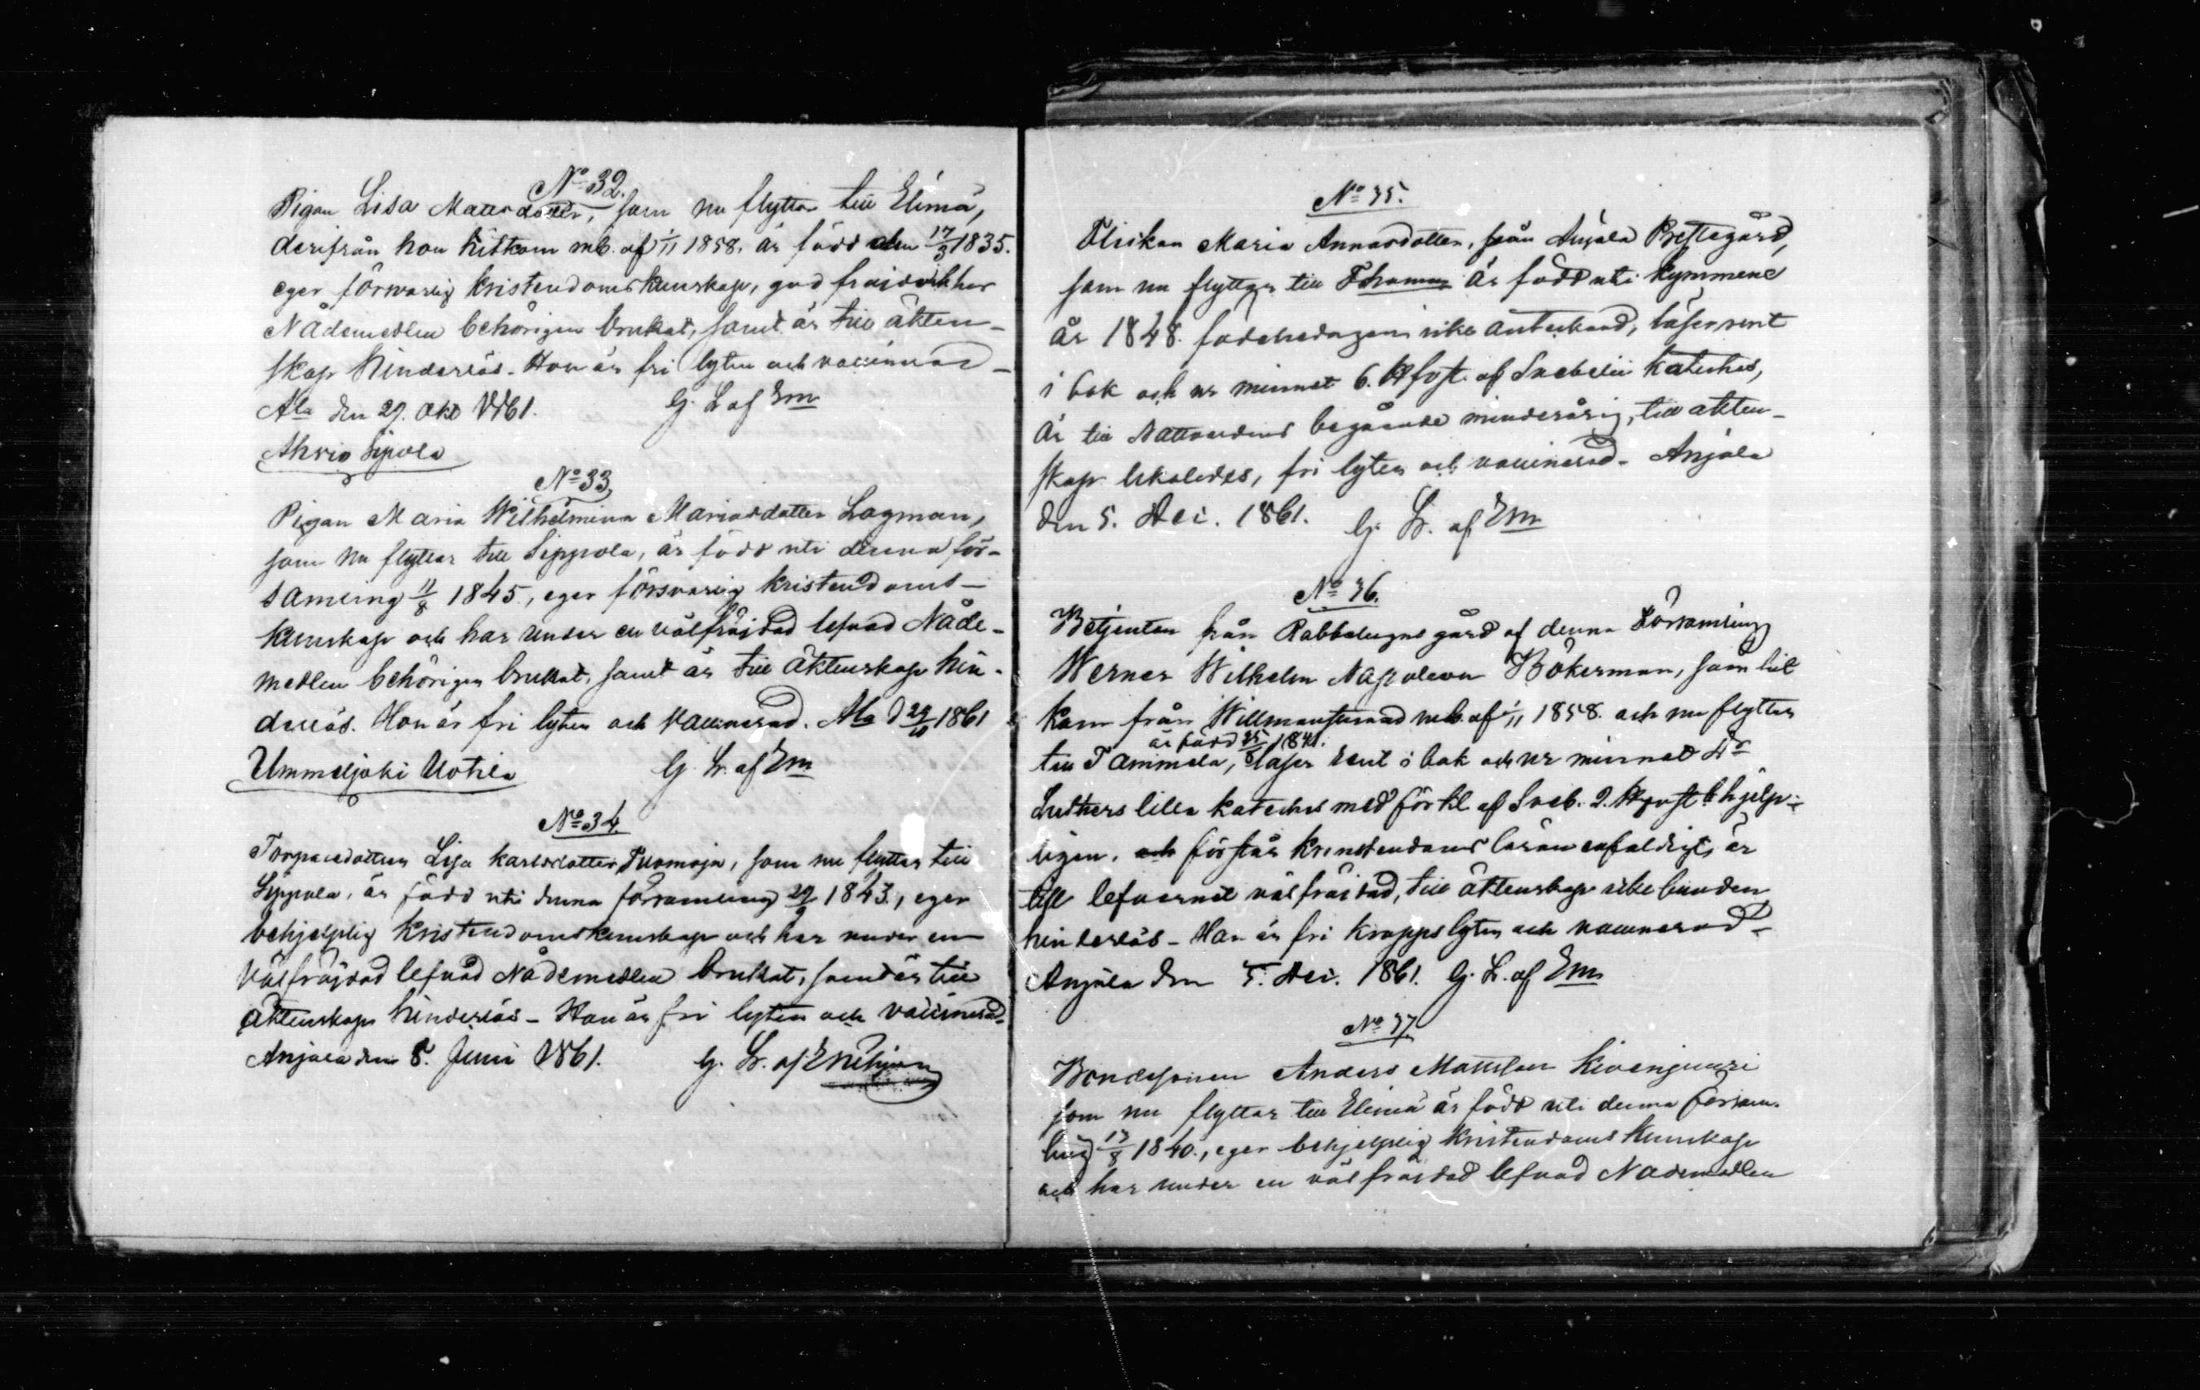 No 32.
Pigan Lisa Mattsdotter, som nu flyttar till Elimä,
derifrån hon hitkom mb. af 1/11 1858. är född den 17/3 1835.
eger försvarlig kristendomskunskap, god frejd och har
Nådemedlen behörigen brukat, samt är till äkten-
skap hinderlös. Hon är fri lyten och vaccinerad -
Ala den 29. Okt 1861. G. L af Em
Ahvio Sipola
No 33
Pigan Maria Wilhelmina Mariasdotter Lagman,
som nu flyttar till Sippola, är född uti denna för-
samling 11/8 1845, eger försvarlig kristendoms-
kunskap och har under en välfräjdad lefnad Nåde-
medlen behörigen brukat, samt är till äktenskap hin-
derlös. Hon är fri lyten och vaccinerad. Ala d 29/10 1861
Ummeljoki Uotila G. L. af Em
No 34
Torparedottren Lisa Karlsdotter Tuomoja, som nu flyttar till
Sippola, är född uti denna församling 29/9 1843, eger
behjelplig kristendomskunskap och har under en
välfräjdad lefnad Nådemedlen brukat, samt är till
äktenskap hinderlös - Hon är fri lyten och vaccinerad.
Anjala den 8. Juni 1861. G. L. af
No 35.
Flickan Maria Annasdotter, från Anjala Prestegård,
som nu flyttar till är född uti Kymmene
år 1848. födelsedagen icke antecknad, läser rent
i bok och ur minnet 6. Hfvst. af Svebelii Katches,
är till Nattvardens begående minderårig, till äkten-
skap likaledes, fri lyten och vaccinerad - Anjala
den 5. Dec. 1861. G. L. af Em
No 36.
Betjenten från Rabbelugns gård af denna Församling
Werner Wilhelm Napoleon Bökerman, som hit
kom från Willmanstrand mb. af 1/11 1858. och nu flyttar
är född 25/8 1841.
till Tammela, läser rent i bok och ur minnet
Luthers lilla kateches med förkl. af Sveb. 2. Hfvst behjelp-
ligen, och förstår kristendoms läran enfaldigt, är
till lefvernet välfräjdad, till äktenskap icke bunden
hinderlös - Han är fri kropps lyten och vaccinerad -
Anjala den 5. Dec. 1861. G. L. af Em
No 37
Bondesonen Anders Mattsson Kivenjuuri
som nu flyttar till Elimä är född uti denna försam-
ling 13/8 1840., eger behjelplig kristendoms kunskap
och har under en välfräjdad lefnad Nådemedlen